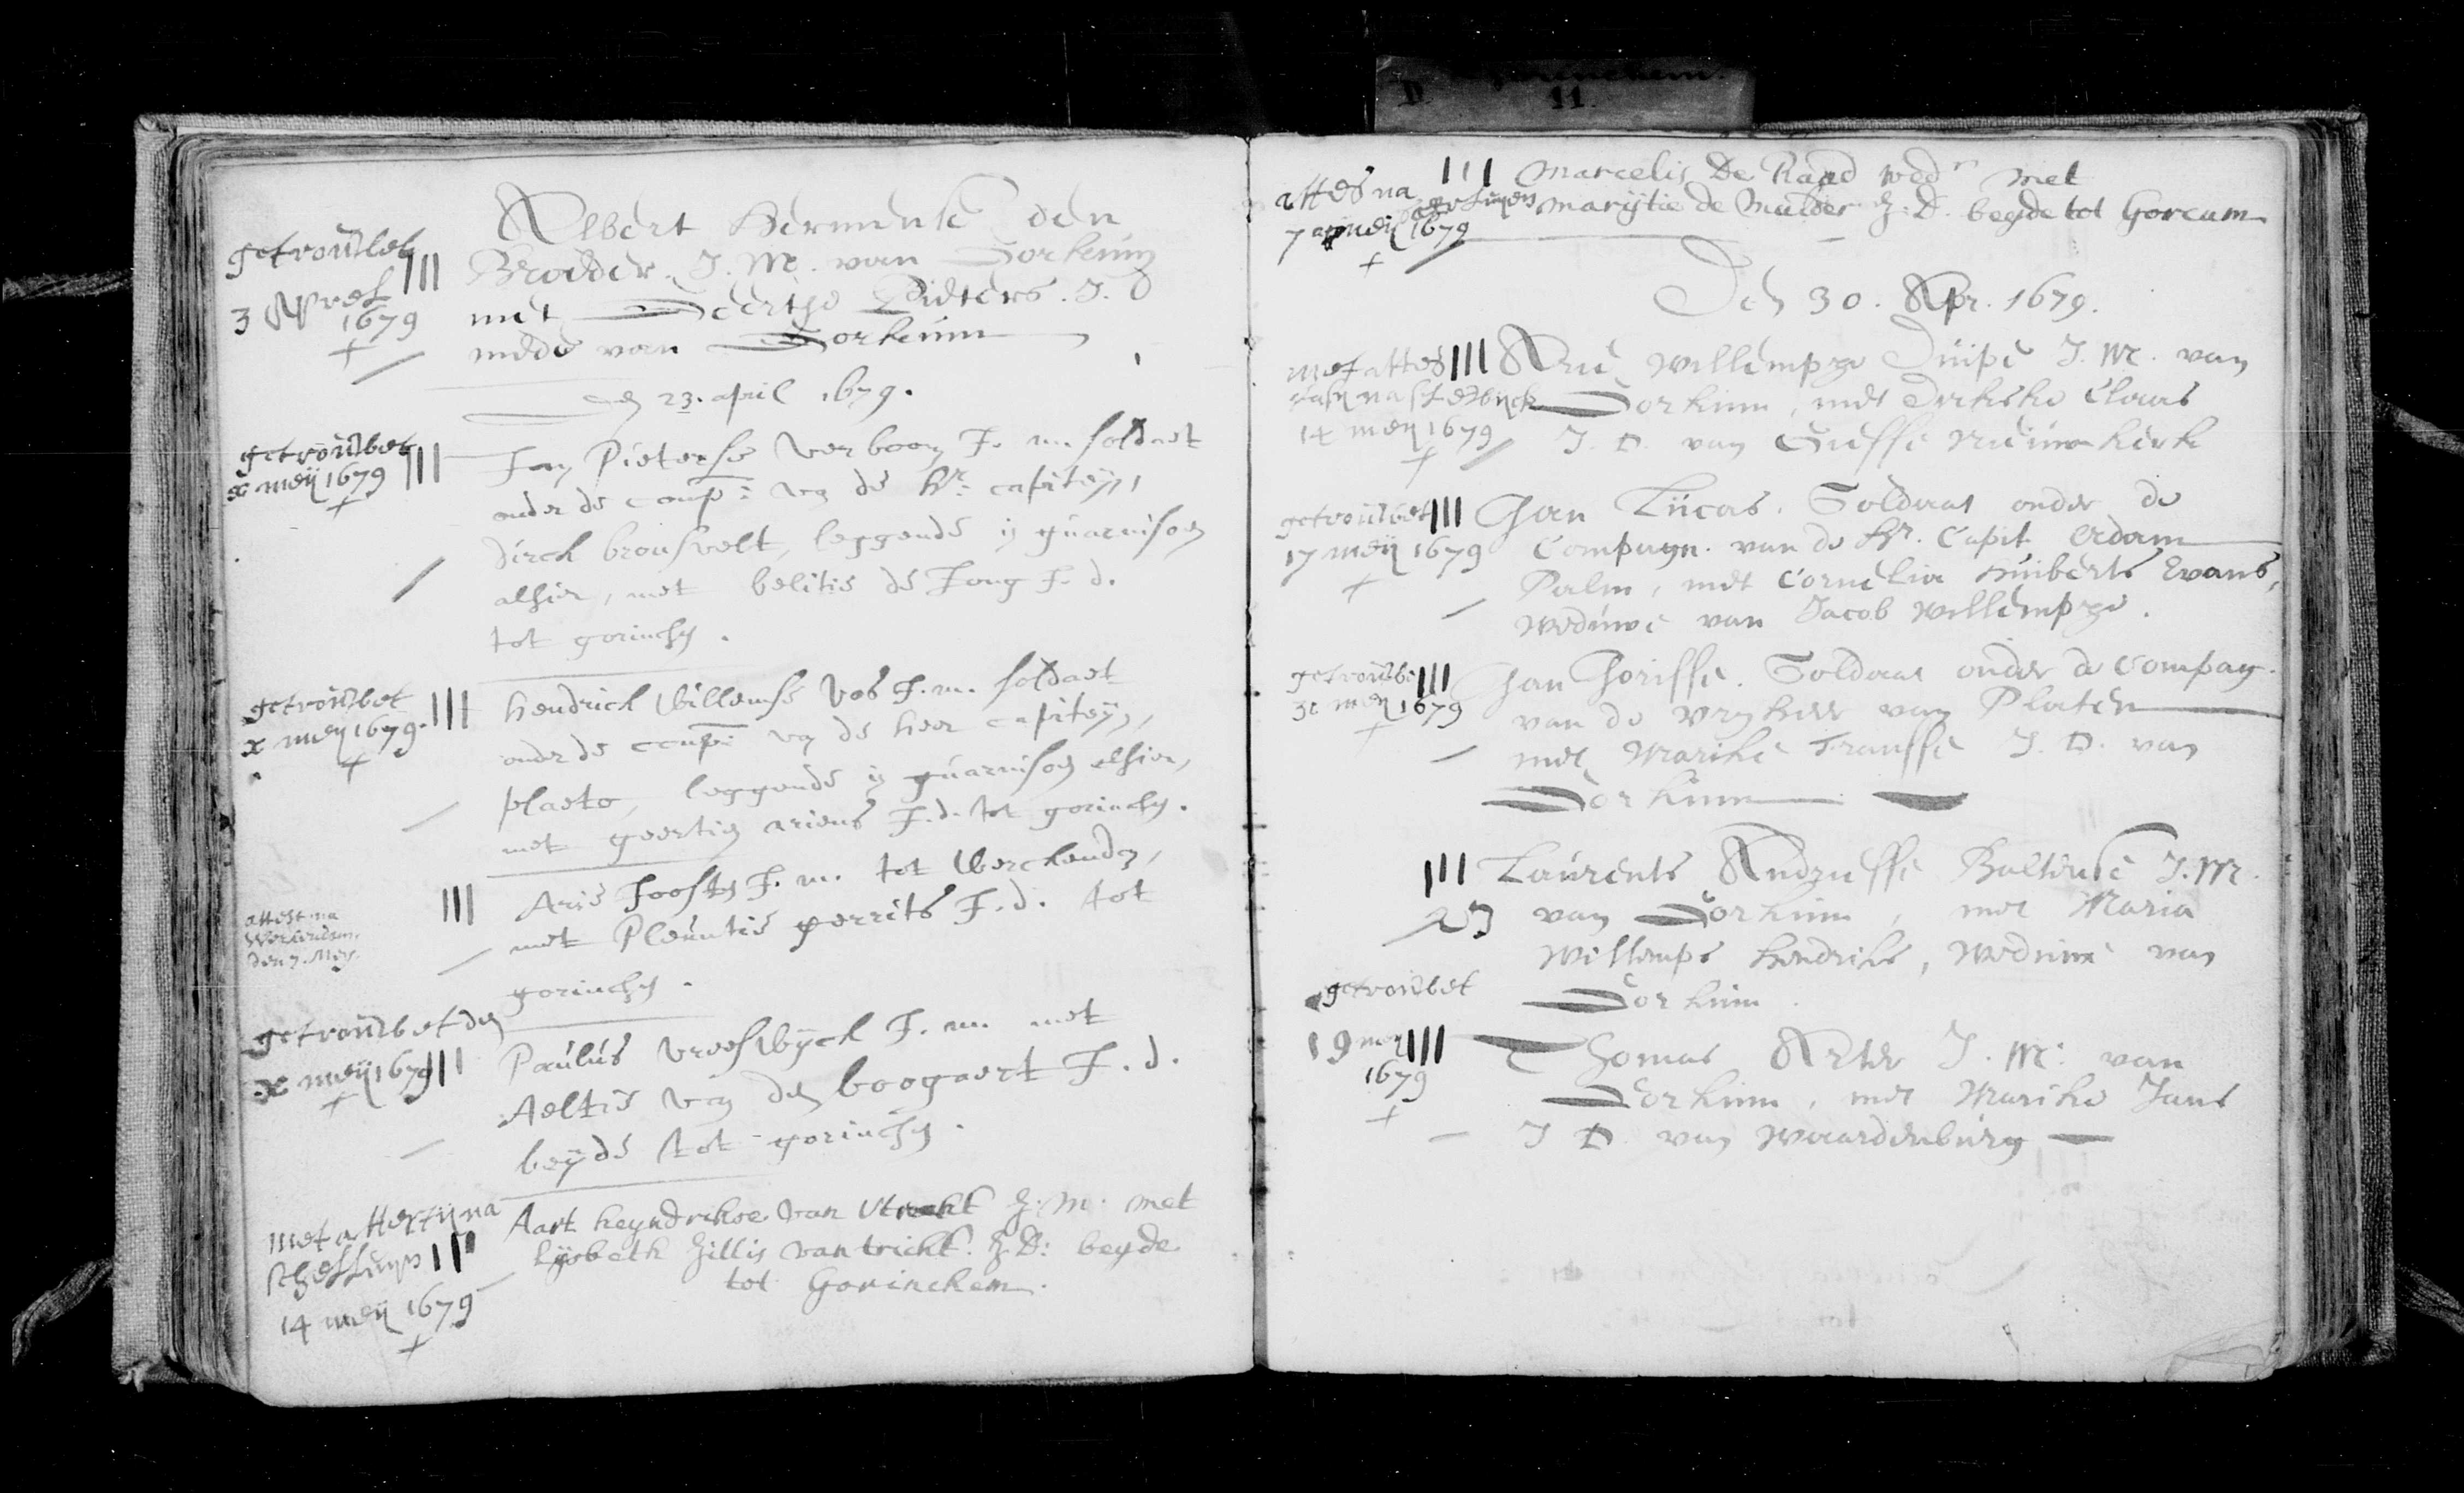 Gorinchem.
D 11.
getrouwbet
3 April
1679
III
Albert Hermense den
Brodder. J. M. van Gorkum
met Geertje Pieters. J. D
mede van Gorkum
den 23. april 1679.
getrouwbet
x meij 1679
III
Jan Pieterse verboom J. m. soldaet
onder de comp: van de Hr: capiteijn
Dirck bronsvelt, leggende in guarnisoen
alhier, met belitie de Jong J. d.
tot gorinchem.
getrouwbet
x meij 1679.
III
Hendrick Willemse Vos J. m. soldaet
onder de comp: van de heer capiteijn
plaeto, leggende in guarnisoen alhier,
met geertien ariens J. d. tot gorinchem.
attest na
den 7. Meij.
III
Aris Joosten J. m. tot Werckendam,
met Pleuntie gerrits J. d. tot
gorinchem.
getrouwbet den
x meij 1679
III
Paulus vreeswijck J. m. met
Aeltie van den boogaert J. d.
beijde tot gorinchem.
met attestij na
14 meij 1679
III
Aart heyndrikse van Utrecht J: M: met
Lijsbeth Jillis van tricht. J: D: beyde
tot Gorinchem.
attes na
7 meij 1679
III
Marcelis De Raad wedr met
Marijtie de Mulder J: D. beyde tot Gorcum
Den 30. Apr. 1679.
met attes
14 meij 1679
III
Arie Willempze Duipe J. M. van
Gorkum, met Dirkske Claas
J. D. van Giesse Nieuwkerk
getrouwbet
17 meij 1679
III
Jan Lucas. Soldaat onder de
Compagn. van de Hr. Capit Adam
Palm, met Cornelia Huiberts Evans,
Weduwe van Jacob Willempze.
getrouwbe
31 meij 1679
III
Jan Jorisse. Soldaat onder de Compag.
van de vryheer van Platen
met Marike Franssse J. D. van
Gorkum
III
Laurents Andriesse Baltense J. M.
van Gorkum, met Maria
Willemps Hendriks, Weduwe van
Gorkum.
getrouwbet
19 meij
1679
III
Thomas Arter J. M: van
Gorkum, met Marike Jans
J D. van Waardenburg